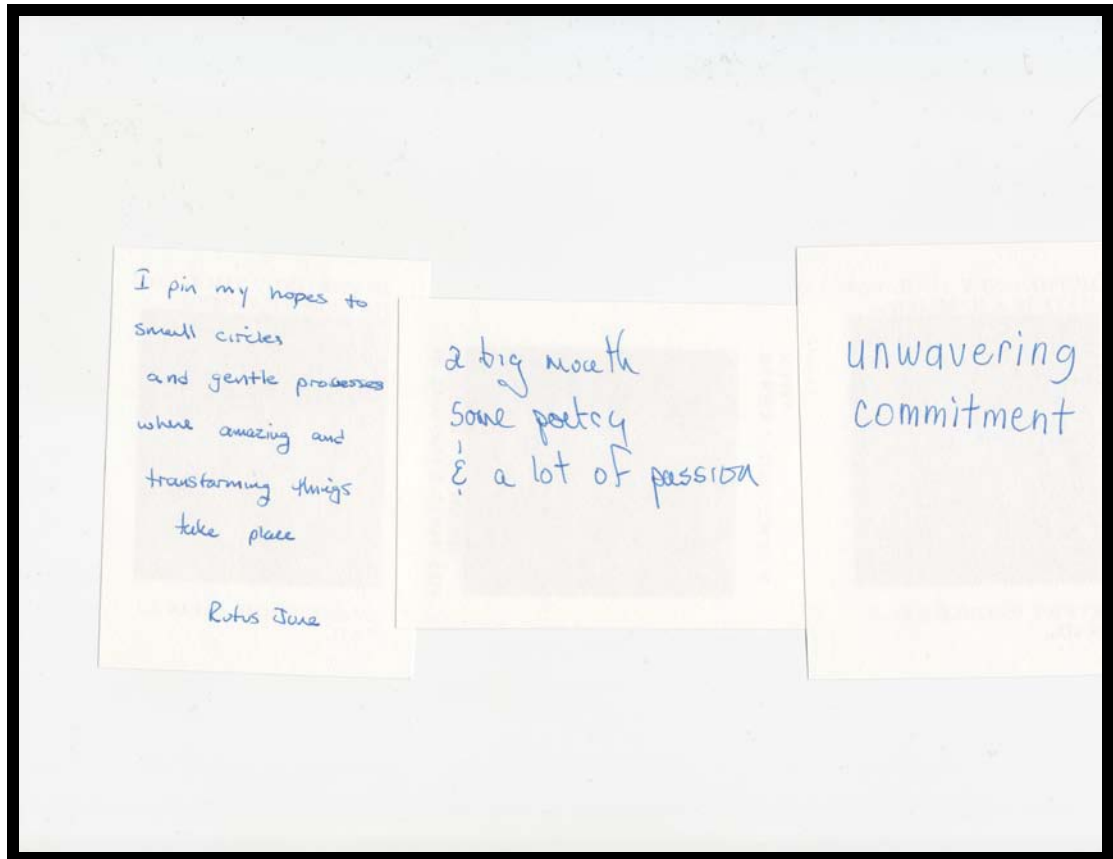 I pin my hopes to
small circles
and gentle processes
where amazing and
transforming things
take place
Rufus June
a big mouth
some poetry
& a lot of passion
unwavering
commitment